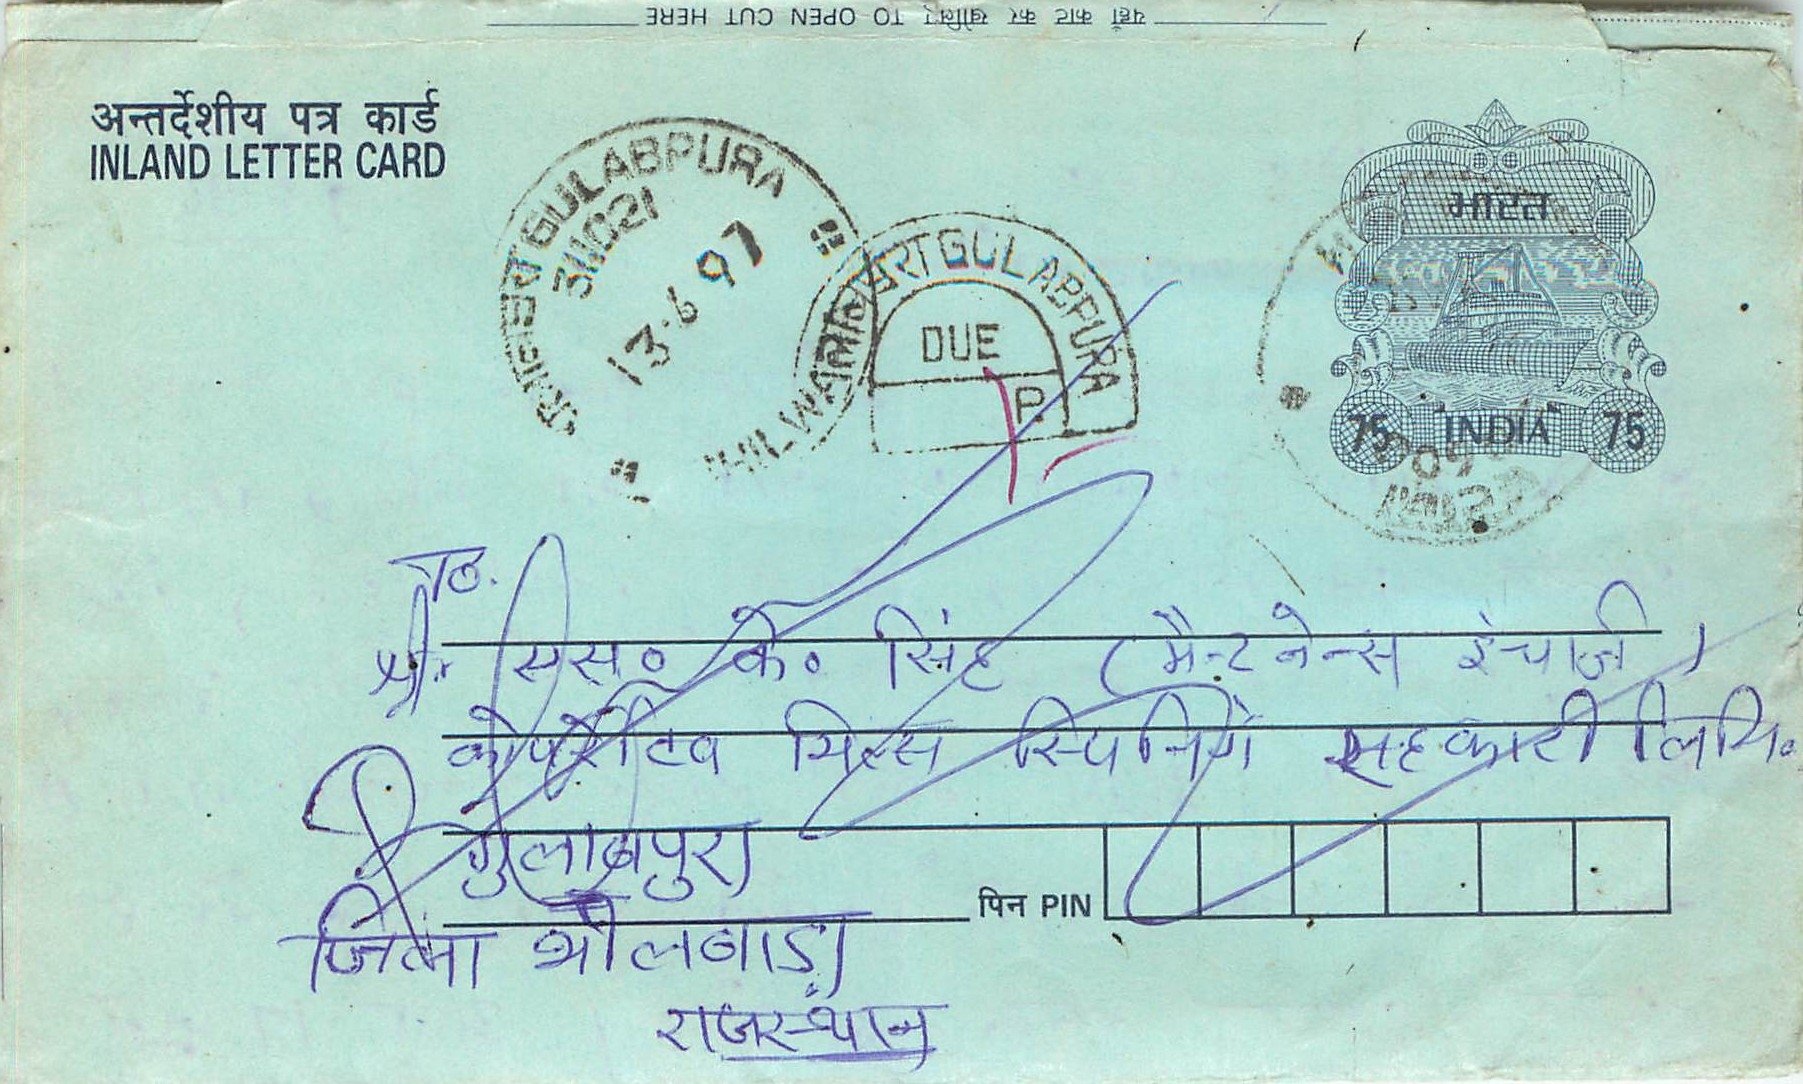 यहाँ काट कर खोलिए TO OPEN CUT HERE
अन्तर्देशीय पत्र कार्ड
INLAND LETTER CARD
गुलाबपुरा GULABPURA
311021
13·6 97
BHILWARA
गुलाबपुरा GULABPURA
DUE
P.
भारत
75 INDIA 75
श्री. एस॰ के॰ सिंह (मैन्टनेन्स इंचार्ज)
कोपरेटिव मिल्स स्पिनिंग सहकारी लिमि॰
गुलाबपुरा
पिन PIN
जिला भीलवाड़ा
राजस्थान